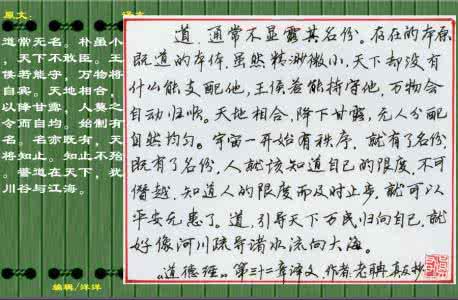 原文:
道常无名。朴虽小
,天下不敢臣。王
侯若能守,万物将
自宾。天地相合,
以降甘露,人莫之
令而自均。始制有
名。名亦既有,天
将知止。知止不殆
。譬道在天下,犹
川谷与江海。
编辑/洋洋
译文
道,通常不显露其名份。存在的本原
既道的本体,虽然精渺微小,天下却没有
什么能支配他,王侯若能持守他,万物会
自动归顺。天地相合,降下甘露,无人分配
自然均匀。宇宙一开始有秩序,就有了名份
既有了名份,人就该知道自己的限度,不可
僭越,知道人的限度而及时止步,就可以
平安无患了。道,引导天下万民归向自己,就
好像河川疏导诸水流向大海。
《道德经》第三十二章译文,作者:老聃,